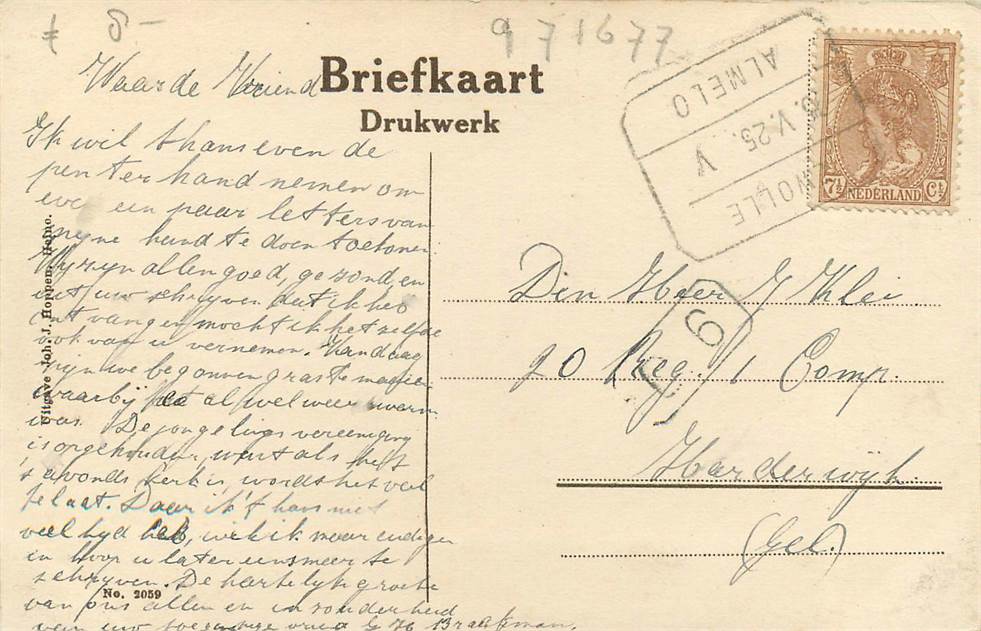 ₺ 8 -
971677
Briefkaart
Drukwerk
ALMELO
V.25. V
ZWOLLE
7½ NEDERLAND Ct
Waarde Vriend
Ik wil thans even de
pen ter hand nemen om
even een paar letters van
myne hand te doen toekomen
Wy zyn allen goed, gezond, en
uit uw schryven dat ik heb
ontvangen mocht ik het zelfde
ook van u vernemen. Vandaag
zijn we begonnen gras te maaien
waarbij het al wel weer warm
was. De jongelings vereeniging
is opgehouden, want als het
's avonds kerk is, wordt het veel
te laat. Daar ik thans niet
veel tyd heb, wil ik maar eindigen
in hoop u later eens meer te
schryven. De hartelyke groete
van ons allen en in zonderheid
van uw vriend G H Braakman.
Den Heer G Klei
20 Reg. 1 Comp.
Harderwyk
(Gel.)
9
Uitgave Joh. J. Hoppen, Heino.
No. 2059